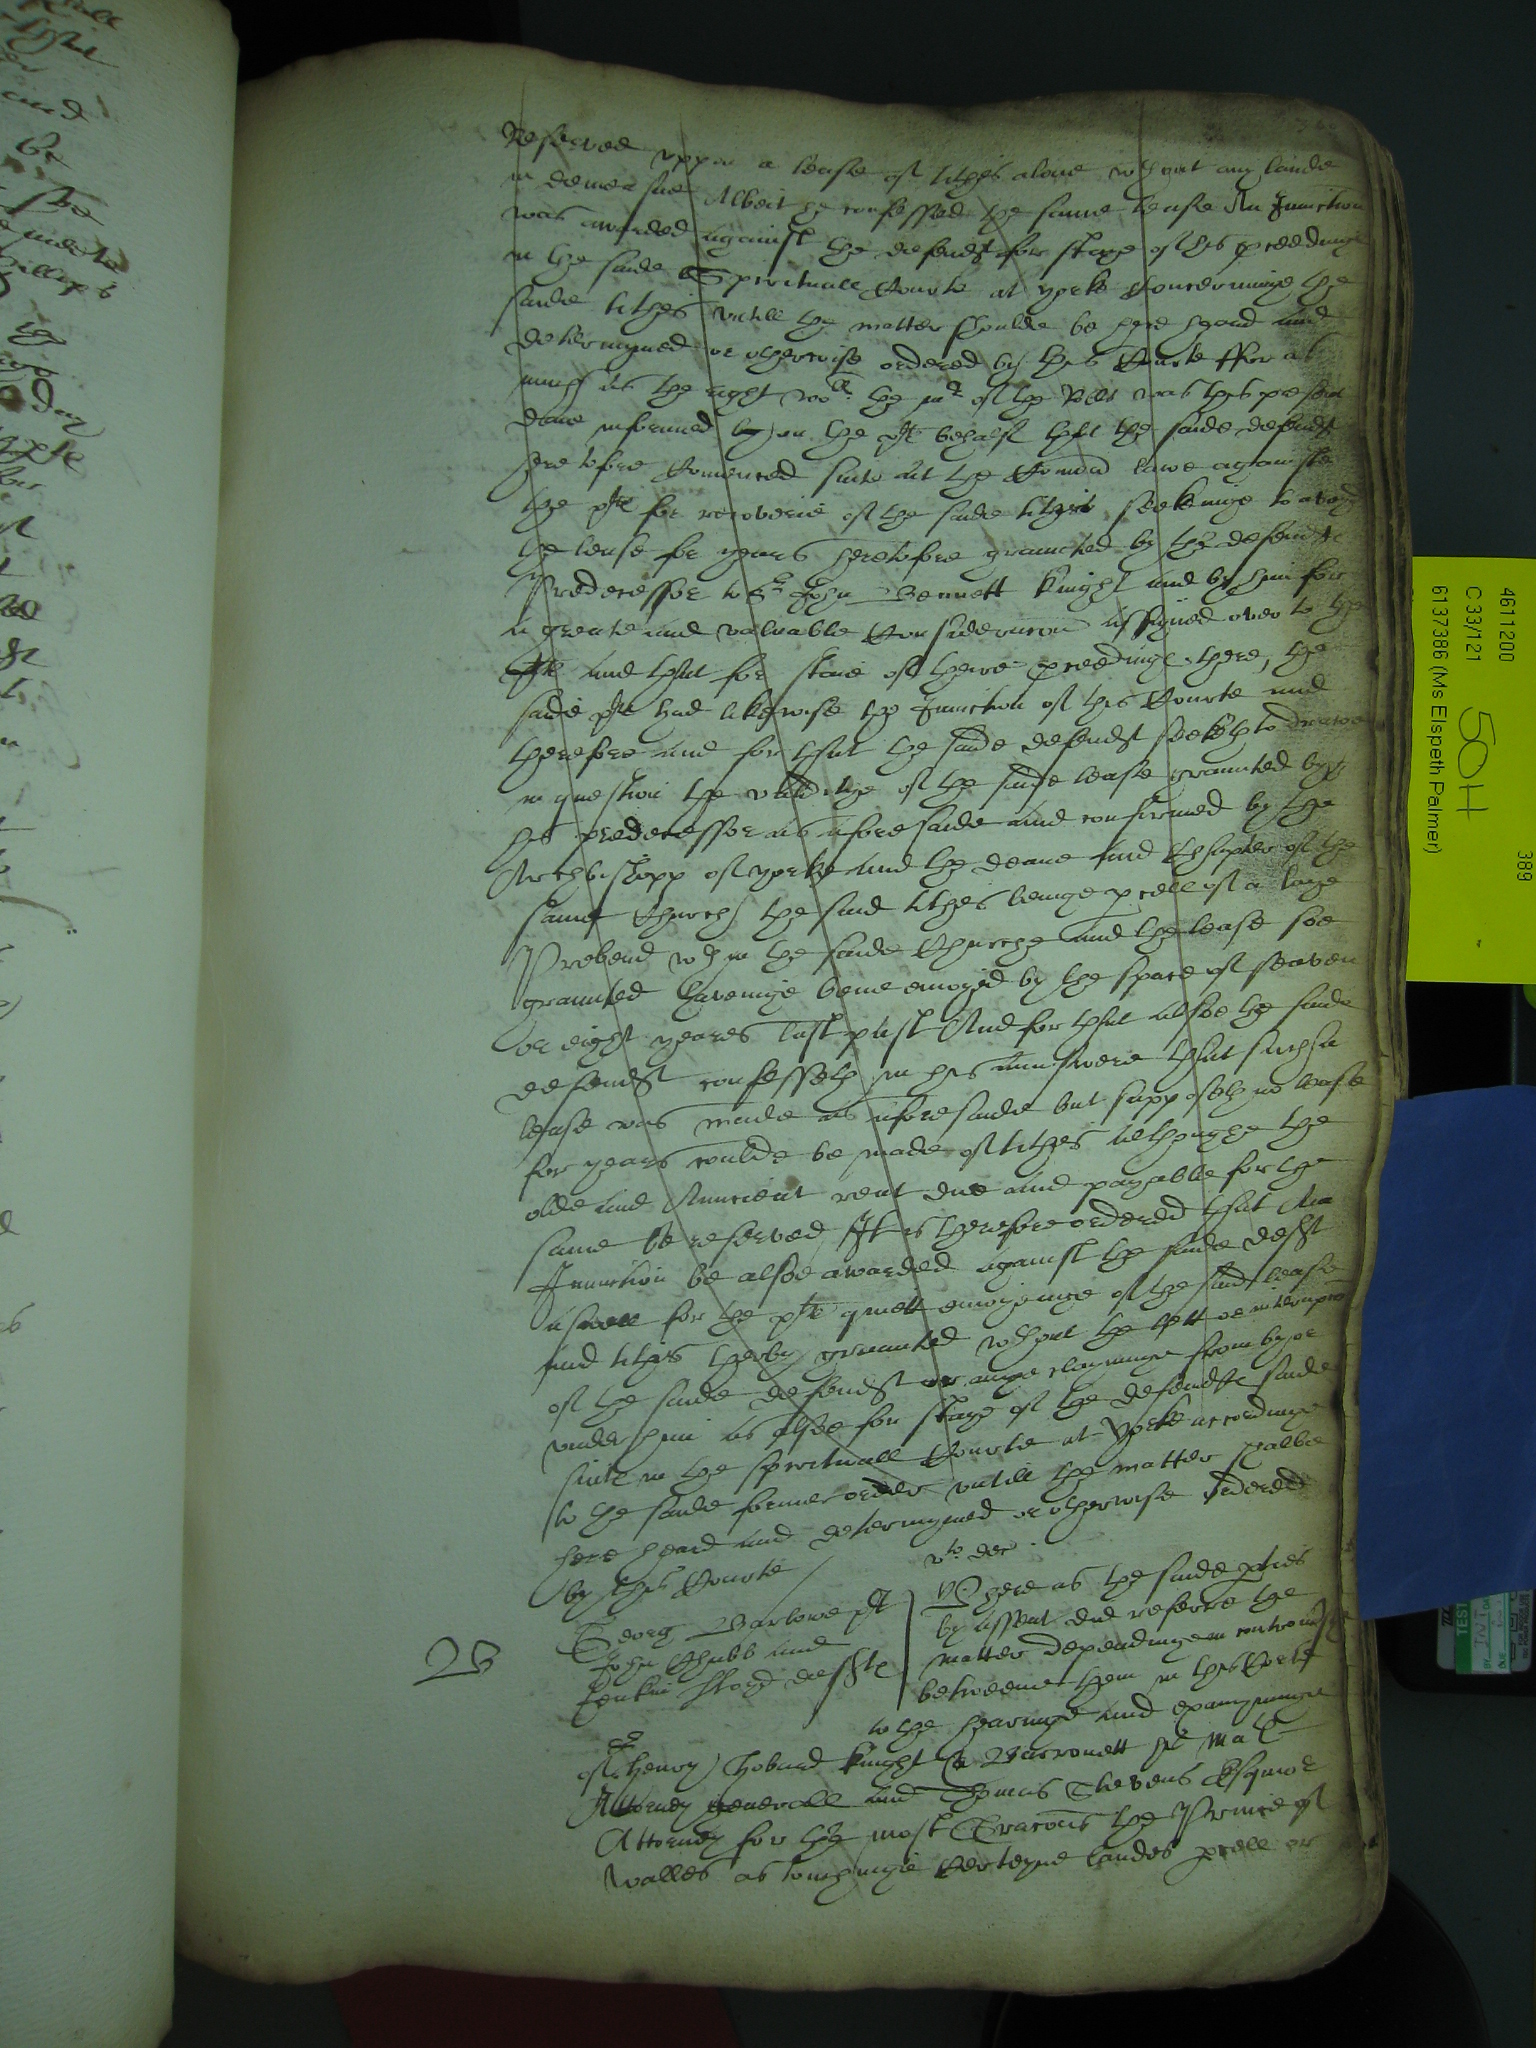 reserved uppon a lease of tithes alone wthout any lande
in demeasne Albeit he confessed the same lease An Iniunction
was awarded against the defendt for staye of his pceedinge
in the saide Spirituall Courte at yorke Concerninge the
saide tithes untill the matter shoulde be here heard and
determyned or otherwise ordered by this Courte ffor as
much as the right wo:ll the mr of the Rolles was this present
daie informed on the plts behalf that the saide defendt
heretofore Comenced suite at the Comon lawe againste
the plt for recoverie of the saide tithes seekinge to avoyd
the lease for yeares heretofore graunted by the defendtes
Predecessor to Sr John Bennett knight and by him for
a greate and valuable Consideracon assigned over to the
plt and that for staie of theire pceedinge there, the
saide plt had likewise the Iniunction of this Courte and
therefore and for that the saide defendt seeketh to drawe
in question the validitye of the saide lease graunted by
his predecessor as aforesaide and confirmed by the
Archbishopp of yorke and the deane and Chapter of the
same Church the said tithes beinge pcell of a laye
Prebend wthin the saide Churche and the lease soe
graunted haveinge bene enioyed by the space of seaven
or eight yeares last past And for that alsoe the saide
defendt confesseth in his aunswere that such a
lease was made as aforesaide but supposeth no lease
for yeares coulde be made of tithes althoughe the
olde and Auncient rent due and payable for the
same be reserved, It is therefore ordered that An
Iniunction be alsoe awarded against the saide deft
aswell for the plts quiett enioyeinge of the said lease
and tithes therby graunted wthout the lett or interrupcon
of the saide defendt or anye clayminge from by or
under him as alsoe for staye of the defendts saide
suite in the spirituall Courte at Yorke accordinge
to the saide former order untill the matter shalbe
here heard and determyned or otherwise ordered
by this Courte
vto dec
Georg Barlowe plt
John Chubb and
Jenkin lloyd defts
Where as the saide pties
by assent did referre the
matter dependinge in controvsie
betweene them in this Corte
to the hearinge and examyninge
of Sr Henry Hobard knight & Barronett his Mats
Attorney generall and Thomas Stevens Esquior
Attorney for the most Gracous the Prince of
Walles as touchinge Certeyne landes pcell or
28
389
4611200
C 33/121
50H
6137386 (Ms Elspeth Palmer)
TEST